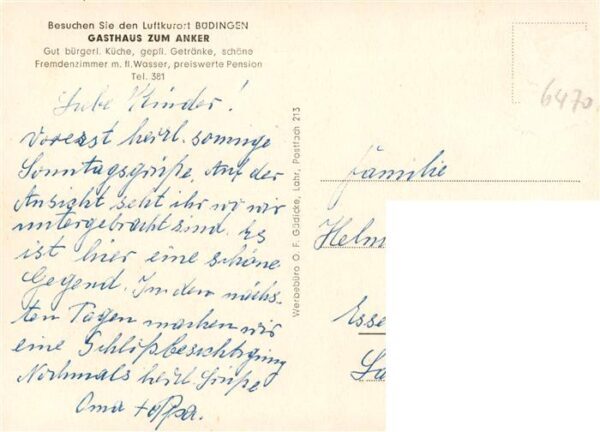 Besuchen Sie den Luftkurort BÜDINGEN
GASTHAUS ZUM ANKER
Gut bürgerl. Küche, gepfl. Getränke, schöne
Fremdenzimmer m. fl. Wasser, preiswerte Pension
Tel. 381
Liebe Kinder!
Vorerst herzl. sonnige
Sonntagsgrüße. Auf der
Ansicht seht ihr wo wir
untergebracht sind. Es
ist hier eine schöne
Gegend. In den nächs-
ten Tagen machen wir
eine Schloßbesichtigung
Nochmals herzl. Grüße
Oma + Opa.
Werbebüro O. F. Gädicke, Lahr, Postfach 213
6470
Familie
Helm
Esse